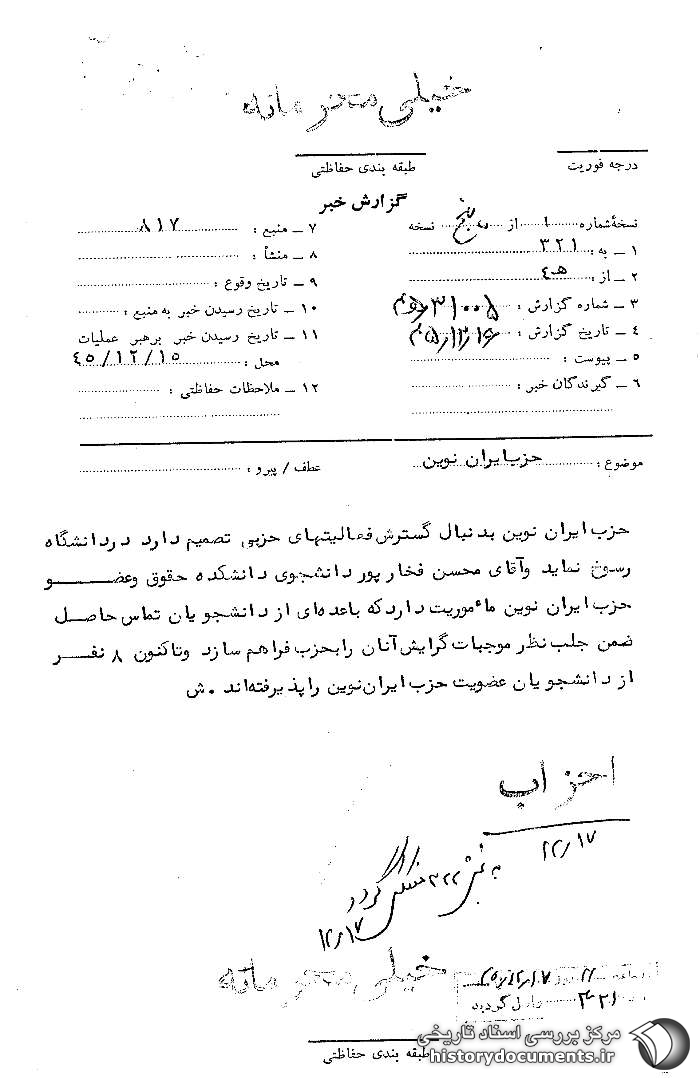 خیلی محرمانه
درجه فوریت
طبقه بندی حفاظتی
گزارش خبر
نسخهٔ شماره ۱ از پنج نسخه
۱ ـ به : ۳۲۱
۲ ـ از : ۴ﻫ
۳ ـ شماره گزارش : ۳۱۰۰۵
۴ ـ تاریخ گزارش : ۴۵/۱۲/۱۶
۵ ـ پیوست :
۶ ـ گیرندگان خبر :
۷ ـ منبع : ۸۱۷
۸ ـ منشأ :
۹ ـ تاریخ وقوع :
۱۰ ـ تاریخ رسیدن خبر به منبع :
۱۱ ـ تاریخ رسیدن خبر برهبر عملیات
محل : ۴۵/۱۲/۱۵
۱۲ ـ ملاحظات حفاظتی :
موضوع : حزب ایران نوین
عطف / پیرو :
حزب ایران نوین بدنبال گسترش فعالیتهای حزبی تصمیم دارد در دانشگاه
رسوخ نماید و آقای محسن فخار پور دانشجوی دانشکده حقوق و عضو
حزب ایران نوین مأموریت دارد که با عده‌ای از دانشجویان تماس حاصل
ضمن جلب نظر موجبات گرایش آنان را بحزب فراهم سازد و تاکنون ۸ نفر
از دانشجویان عضویت حزب ایران نوین را پذیرفته‌اند . ش
احزاب
۱۲/۱۷
به بخش ۳۲۲ منعکس گردد
۱۲/۱۷
خیلی محرمانه
۴۵/۱۲/۱۷
۳۲۱ واصل گردید
طبقه بندی حفاظتی
مرکز بررسی اسناد تاریخی
historydocuments.ir